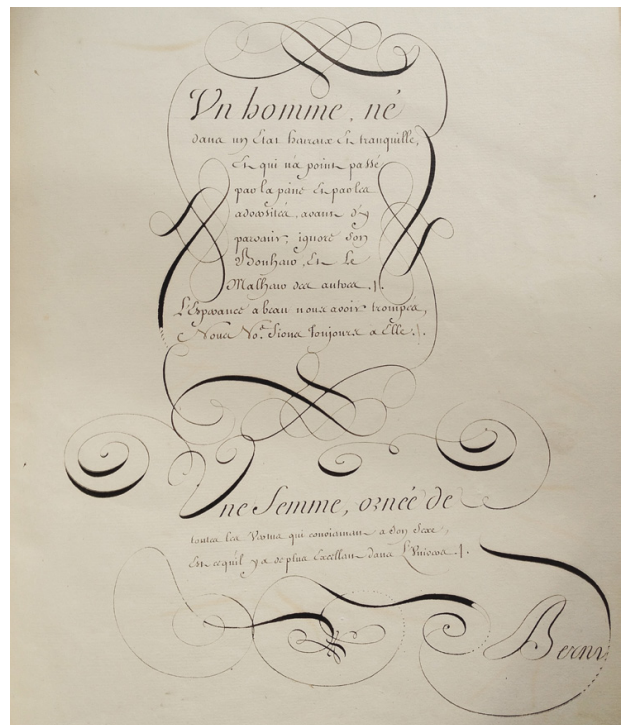 Vn homme, né
dans un Etat heureux Et tranquille,
Et qui n'a point passé
par la pène Et par les
adversités, avant d'y
parvenir, ignore son
Bonheur, Et Le
Malheur des autres ./.
L'Esperance a beau nous avoir trompés,
Nous No.s fions toujours a Elle ./.
Vne femme, ornée de
toutes les Vertus qui conviennent a son sexe,
Est ce qu'il y a de plus Excellant dans L'Univers ./.